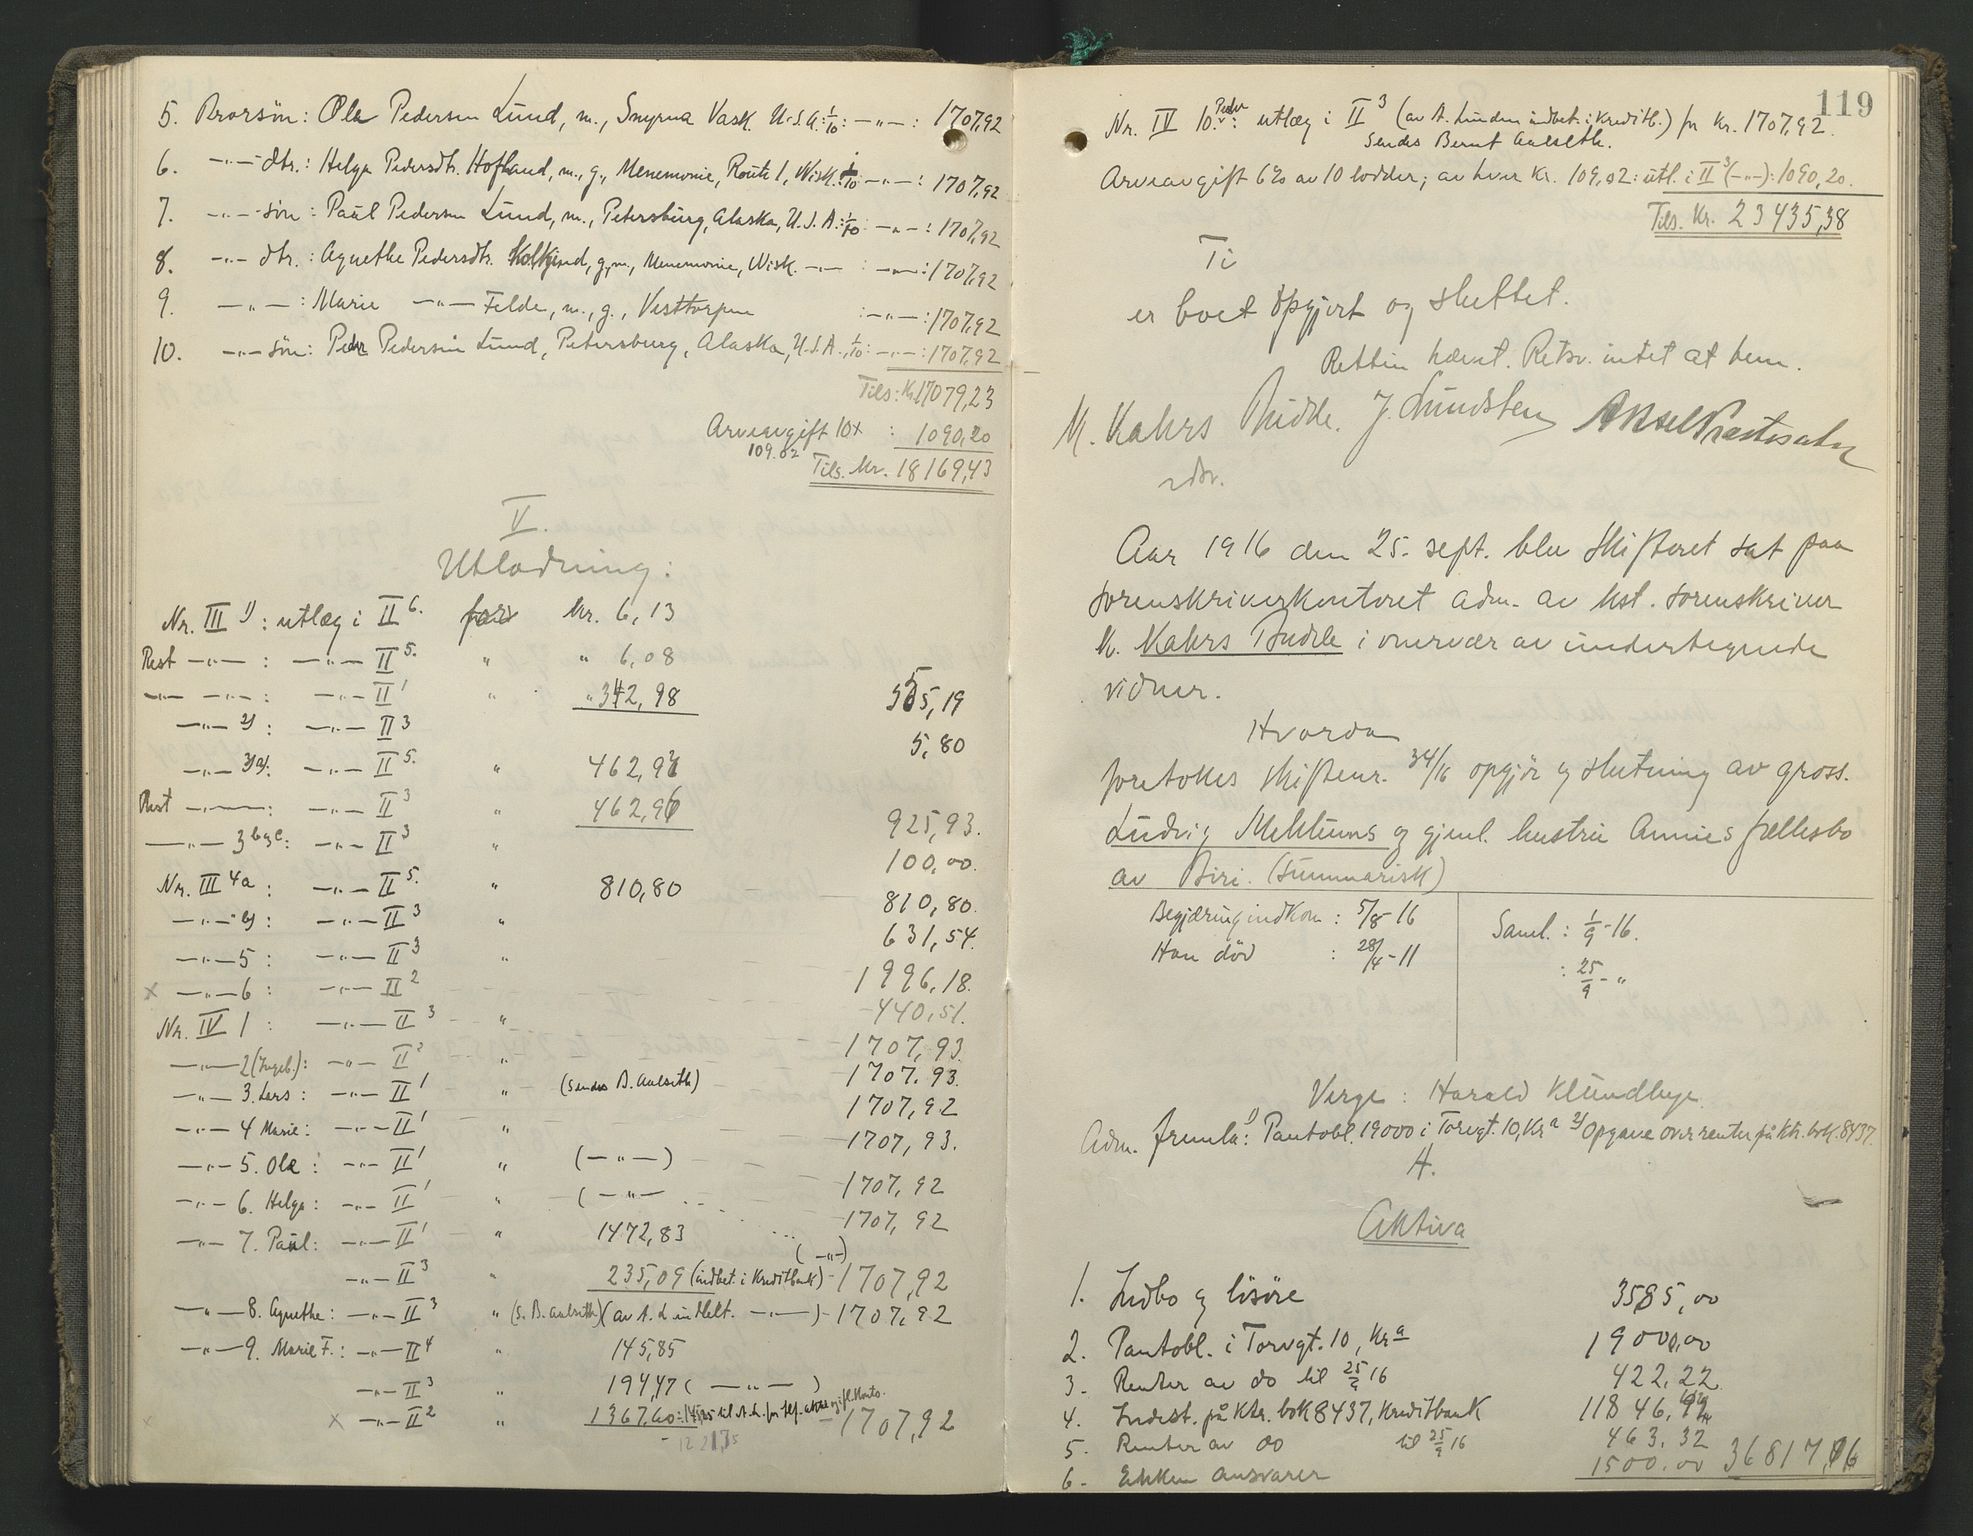 5. Brorsøn: Ole Pedersen Lund, m., Smyrna Vask. U.S.A. : 1/10 : —"— : 1707,92
6. —"— dtr.: Helga Pedersdtr. Hofland, m., g., Menemonie, Route 1, Wisk. : 1/10 —"— : 1707,92
7. —"— søn: Paul Pedersen Lund, m., Petersburg, Alaska, U.S.A. : 1/10 —"— : 1707,92
8. —"— dtr.: Agnethe Pedersdtr. g., m., Menemonie, Wisk. —"— : —"— : 1707,92
9. —"— : Marie —"— Felde, m., g., Vesttorpen : —"— : 1707,92
10. —"— søn: Peder Pedersen Lund, Petersburg, Alaska, U.S.A., 1/10 : —"— : 1707,92
Tils: Kr. 17079,23
Arveavgift 10 x 109.02 : 1090,20
Tils. Kr. 18169,43
V.
Utlodning:
Nr. III 1) : utlæg i II 6. for Kr. 6,13
Rest —"— : —"— II 5. " " 6,08
—"— —"— : —"— II 1 " " 342,98 355,19
—"— 2) : —"— II 3 5,80
—"— 3)a) : —"— II 5. " 462,97
Rest —"— : —"— II 3 " 462,96 925,93.
—"— 3 b og c : —"— II 3 " 100,00.
Nr. III 4a : —"— II 5. " 810,80 810,80.
—"— b) : —"— II 3 " 631,54.
—"— 5 : —"— II 3 " 1996,18.
x —"— 6 : —"— II 2 440,51.
Nr. IV 1 : —"— II 3 " 1707,93.
—"— 2 (Ingeb.) : —"— II 2 " 1707,93.
—"— 3. Lars : —"— II 1 " (Sendes B. Aulseth) 1707,92
—"— 4 Marie : —"— II 1 " 1707,93.
—"— 5. Ole : —"— II 1 " (—"—) 1707,92
—"— 6. Helga : —"— II 1 " (—"— 1707,92
—"— 7. Paul : —"— II 1 " 1472,83 (—"—)
—"— II 3 " 235,09 (indbet. i Kreditbank) 1707,92
—"— 8. Agnethe : —"— II 3 " (S. B. Aulseth) (av A. L. indbet. —"—) 1707,92
—"— 9. Marie F. : —"— II 4 " 145,85
—"— II 3 " 194,47 (—"—)
x —"— II 2 " 1367,60 1707,92
119
Nr. IV 10. Peder : utlæg i II 3 (av A. Lunden indbet. i Kreditb.) for Kr. 1707,92.
Sendes Bernt Aulseth.
Arveavgift 6% av 10 lodder; av hver Kr. 109,02 : utl. i II 3 (—"—) : 1090,20.
Tils. Kr. 23435,38
Ti
er boet opgjort og sluttet.
Retten hævet. Retsv. intet at bem.
K. Kahrs Budde. J. Lundsten Aksel Præstesæter
cdsv.
Aar 1916 den 25. sept. blev skifteret sat paa
sorenskriverkontoret adm. av kst. sorenskriver
K. Kahrs Budde i overvær av undertegnede
vidner.
Hvorda
foretokes skiftenr. 34/16 opgjør og slutning av gross.
Ludvig Mehlums og gjenl. hustru Annies fællesbo
av Biri. (summarisk)
Begjæring indkom : 5/8-16
Han død : 28/4-11
Saml. : 1/9-16.
: 25/9-"
Verge : Harald Klundby.
Adm. fremla: 1) Pantobl. 19000 i Torvgt. 10, Kr.a 2) Opgave over renter på ktr. bok. 8437.
A.
Aktiva
1. Indbo og løsøre 3585,00
2. Pantobl. i Torvgt. 10, Kr.a 19000,00
3. Renter av do til 25/9 16 422,22
4. Indest. på Ktr. bok 8437, Kreditbank 11846,
5. Renter av do til 25/9 16 463,32
6. Enken ansvarer 1500.00 36817,16